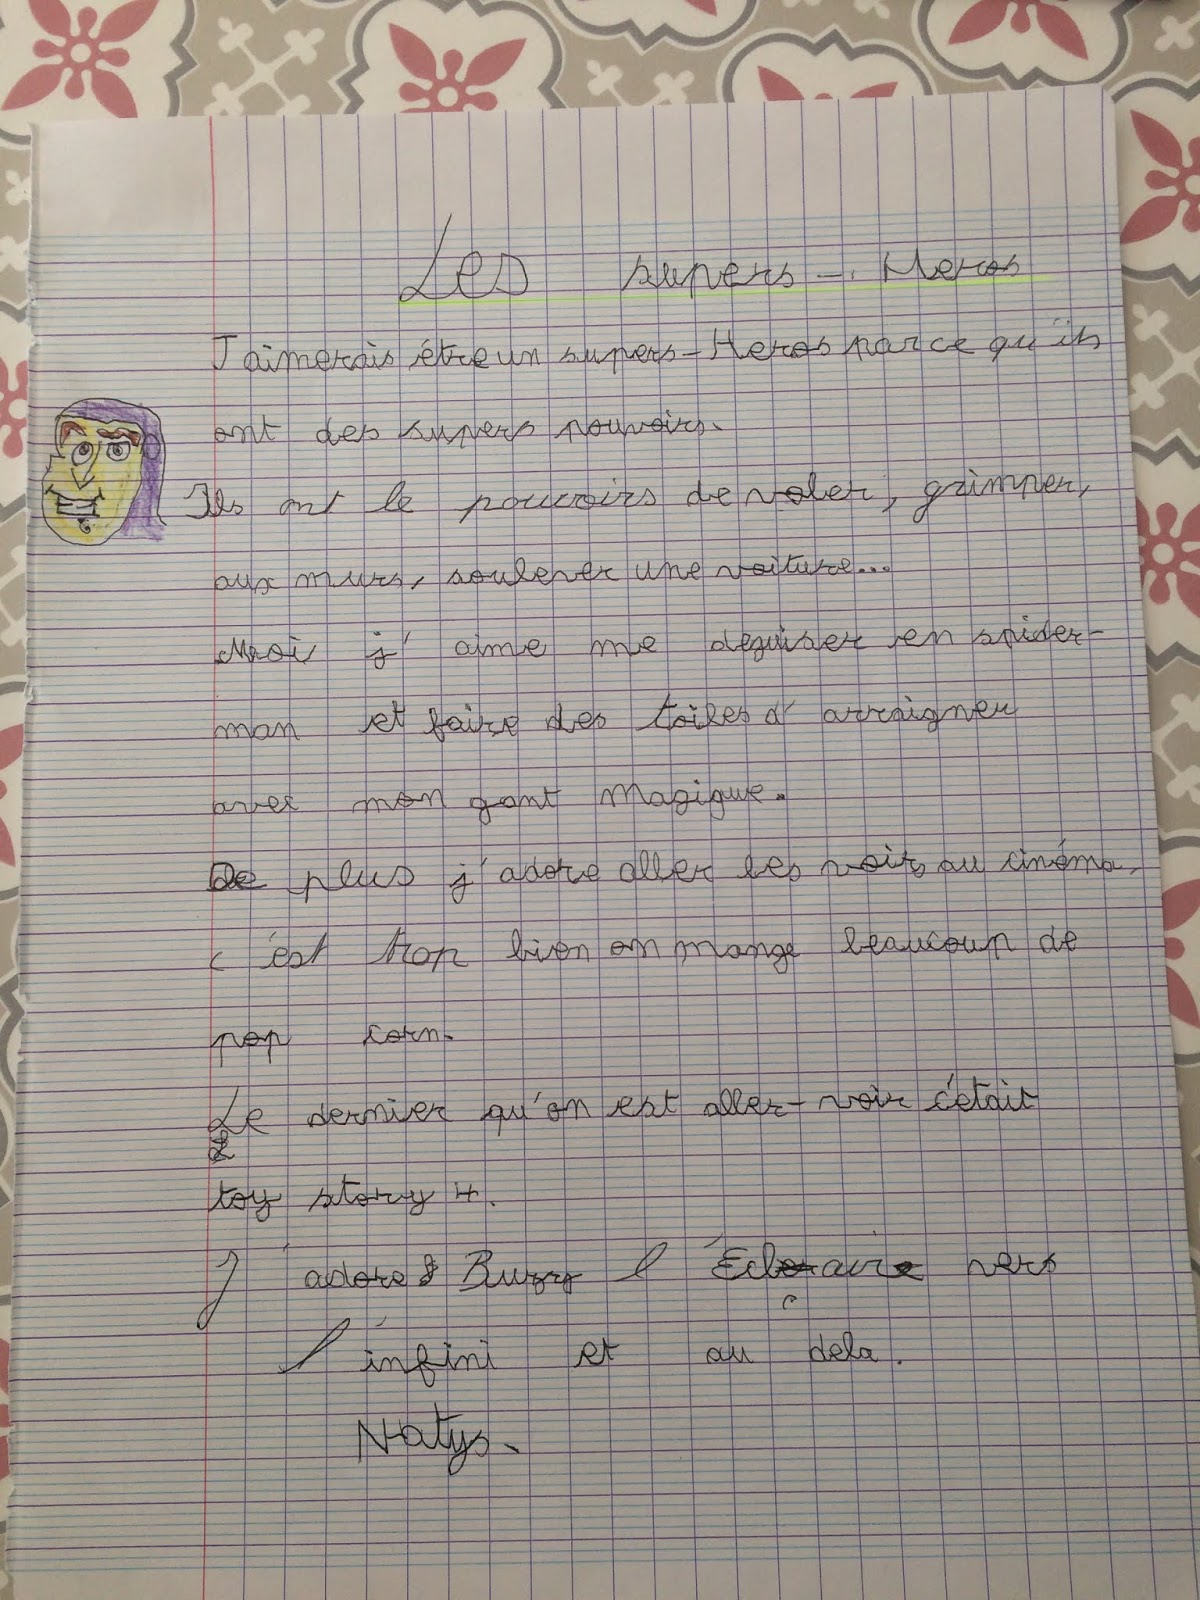 Les supers-Heros
J'aimerais être un supers-Heros parce qu'ils
ont des supers pouvoirs.
Ils ont le pouvoirs de voler, grimper,
aux murs, soulever une voiture...
Moi j'aime me deguiser en spider-
man et faire des toiles d'arraigner
avec mon gant magique.
De plus j'adore aller les voirs au cinéma,
c'est trop bien on mange beaucoup de
pop corn.
Le dernier qu'on est aller-voir c'était
toy story 4.
J'adore Buzz l'Eclaire vers
l'infini et au dela.
Natys.